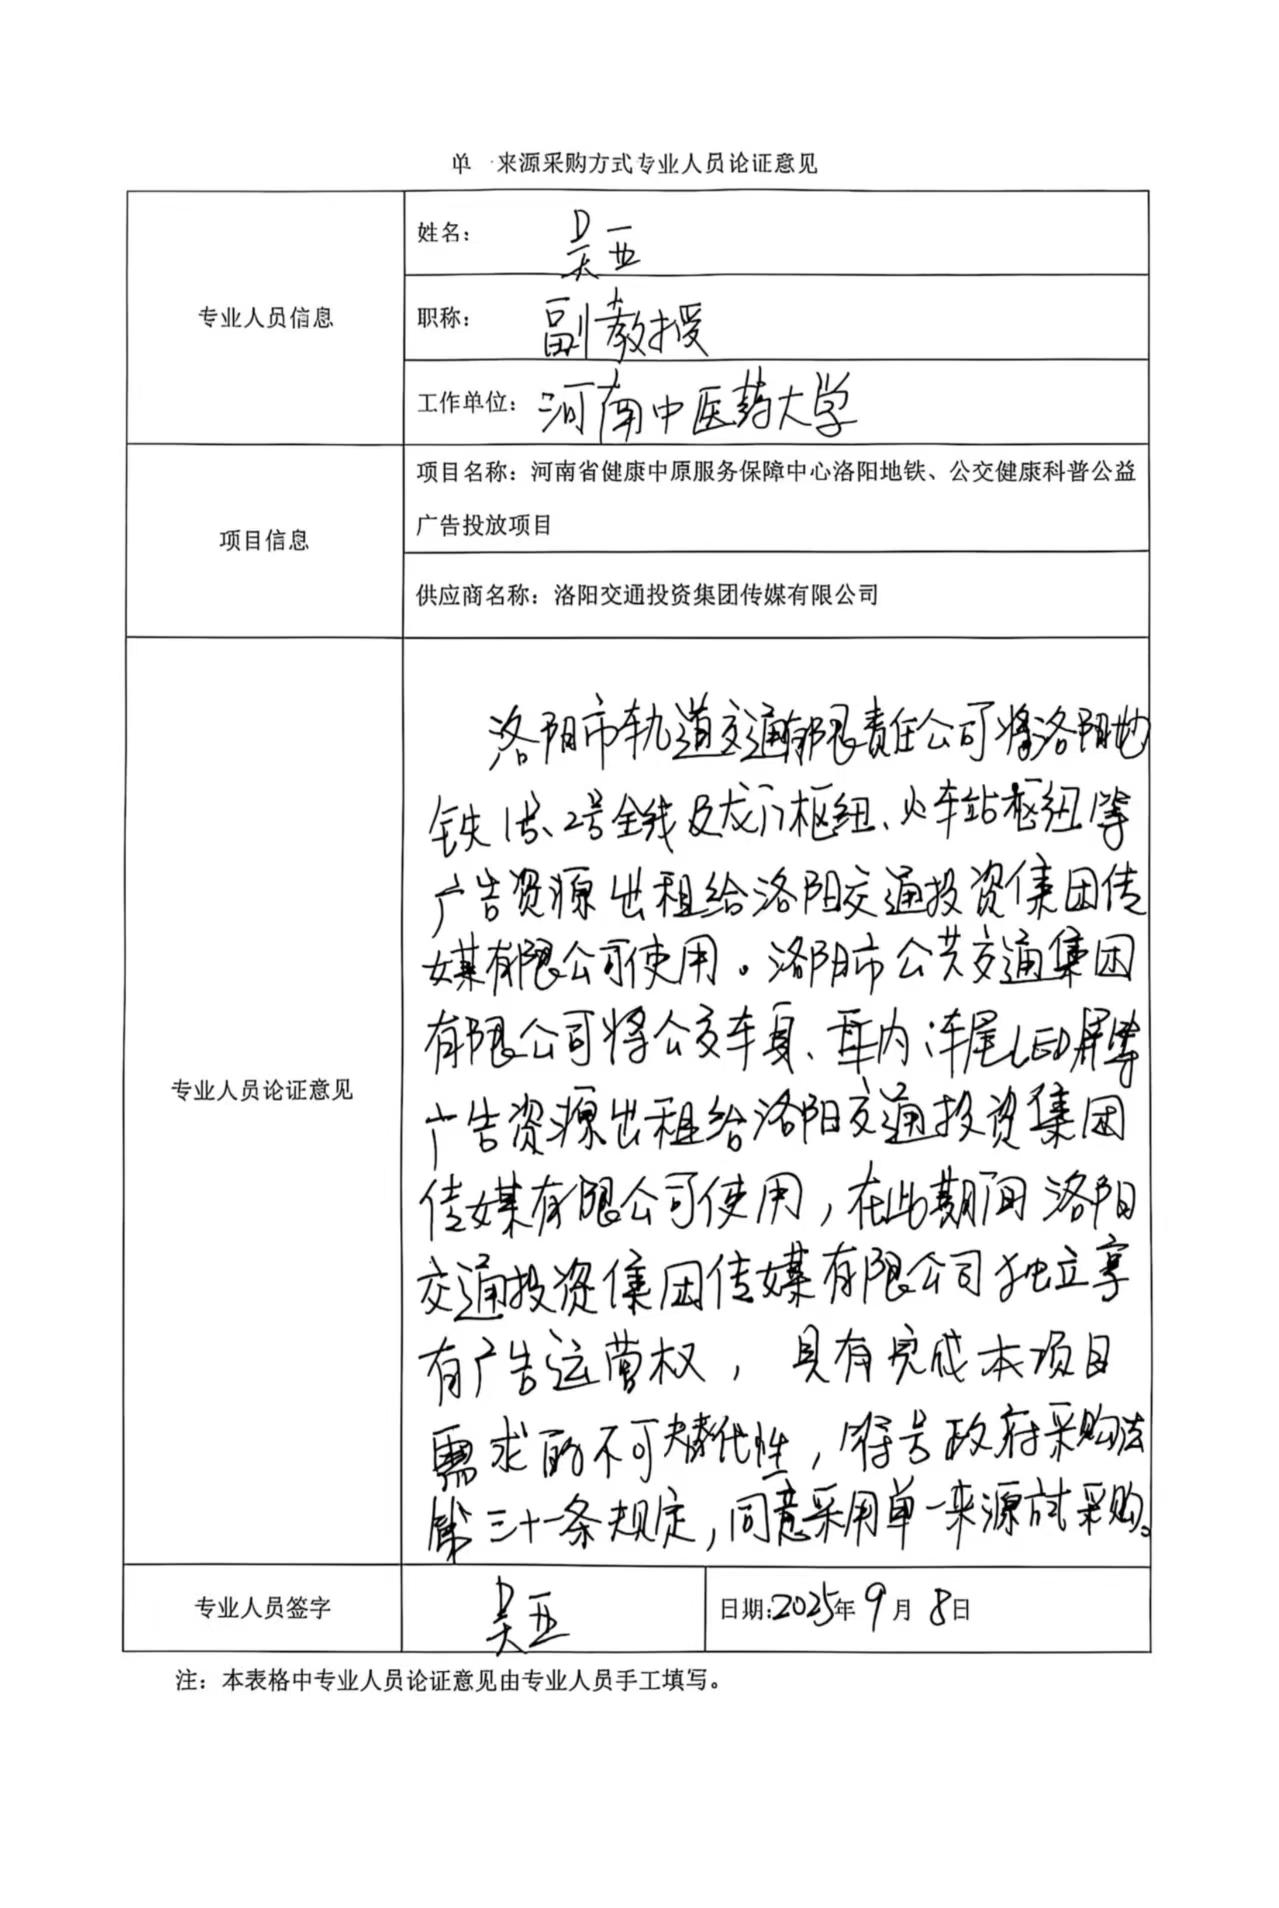 单一来源采购方式专业人员论证意见
专业人员信息
姓名: 吴亚
职称: 副教授
工作单位: 河南中医药大学
项目信息
项目名称: 河南省健康中原服务保障中心洛阳地铁、公交健康科普公益
广告投放项目
供应商名称: 洛阳交通投资集团传媒有限公司
专业人员论证意见
洛阳市轨道交通有限责任公司将洛阳地
铁1号、2号全线及龙门枢纽、火车站枢纽等
广告资源出租给洛阳交通投资集团传
媒有限公司使用。洛阳市公共交通集团
有限公司将公交车身、车内、车尾LED屏等
广告资源出租给洛阳交通投资集团
传媒有限公司使用,在此期间洛阳
交通投资集团传媒有限公司独立享
有广告运营权,具有完成本项目
需求的不可替代性,符合政府采购法
第三十一条规定,同意采用单一来源方式采购。
专业人员签字
吴亚
日期:2025年9月8日
注: 本表格中专业人员论证意见由专业人员手工填写。